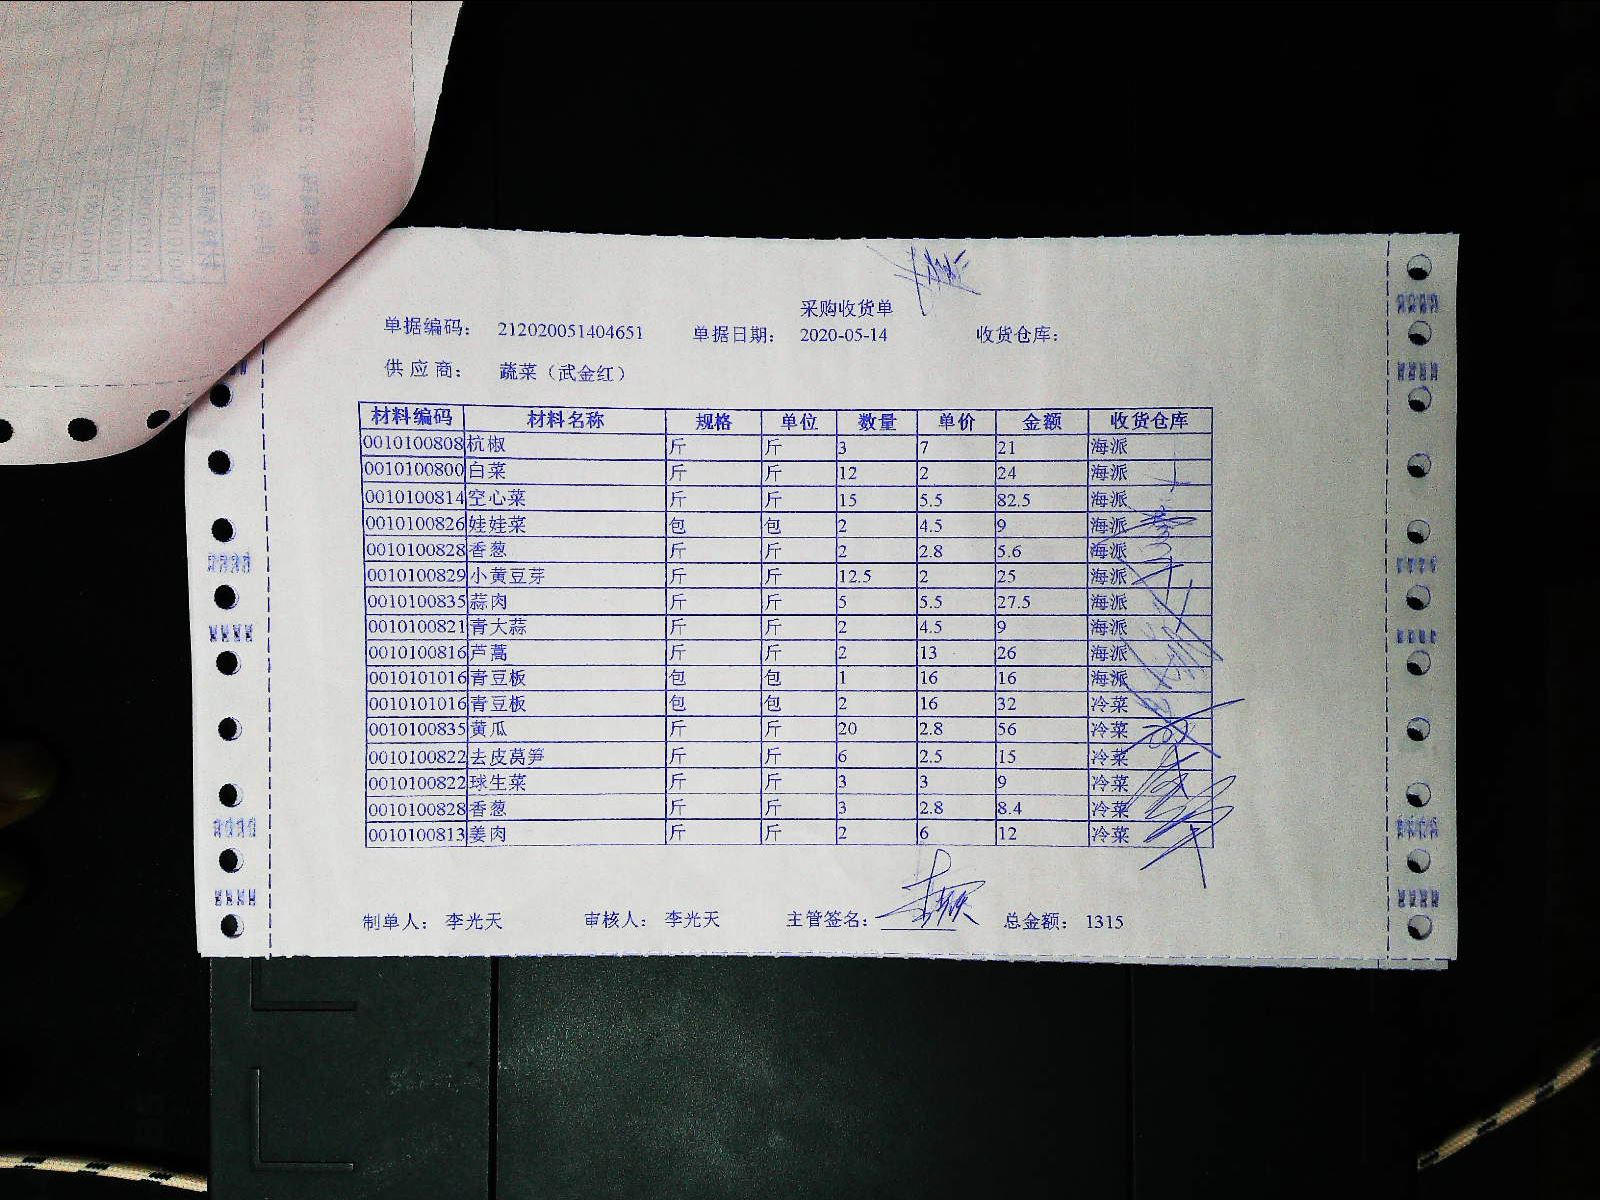 采购收货单
单据编码： 212020051404651 单据日期： 2020-05-14 收货仓库：
供应商： 蔬菜（武金红）
材料编码 材料名称 规格 单位 数量 单价 金额 收货仓库
0010100808 杭椒 斤 斤 3 7 21 海派
0010100800 白菜 斤 斤 12 2 24 海派
0010100814 空心菜 斤 斤 15 5.5 82.5 海派
0010100826 娃娃菜 包 包 2 4.5 9 海派
0010100828 香葱 斤 斤 2 2.8 5.6 海派
0010100829 小黄豆芽 斤 斤 12.5 2 25 海派
0010100835 蒜肉 斤 斤 5 5.5 27.5 海派
0010100821 青大蒜 斤 斤 2 4.5 9 海派
0010100816 芦蒿 斤 斤 2 13 26 海派
0010101016 青豆板 包 包 1 16 16 海派
0010101016 青豆板 包 包 2 16 32 冷菜
0010100835 黄瓜 斤 斤 20 2.8 56 冷菜
0010100822 去皮莴笋 斤 斤 6 2.5 15 冷菜
0010100822 球生菜 斤 斤 3 3 9 冷菜
0010100828 香葱 斤 斤 3 2.8 8.4 冷菜
0010100813 姜肉 斤 斤 2 6 12 冷菜
制单人： 李光天 审核人： 李光天 主管签名： 总金额： 1315